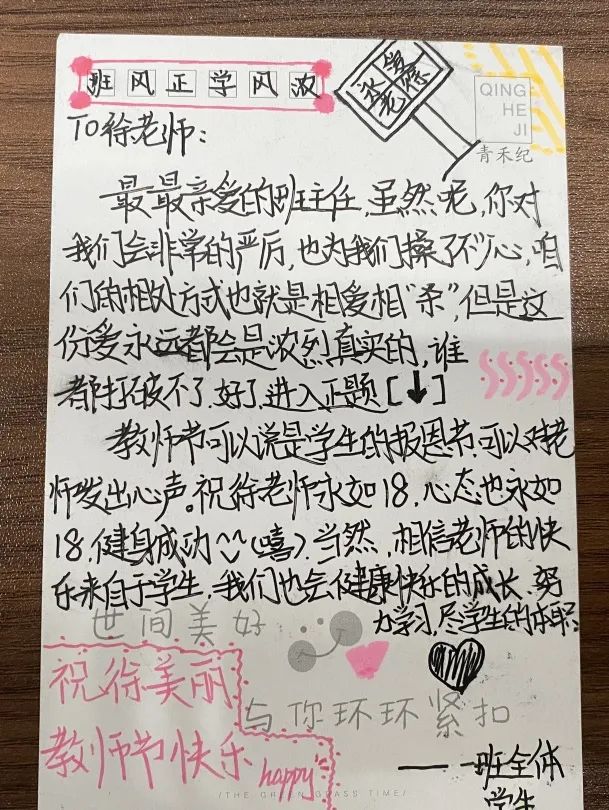 班风正学风浓
QING
HE
JI
青禾纪
TO徐老师:
最最亲爱的班主任,虽然呢,你对
我们会非常的严厉,也为我们操了不少心,咱
们的相处方式也就是相爱相"杀",但是这
份爱永远都会是浓烈真实的,谁
都打破不了.好了,进入正题[↓]
教师节可以说是学生的报恩节.可以对老
师发出心声。祝徐老师永如18,心态也永如
18.健身成功^^(嘻).当然,相信老师的快
乐来自于学生.我们也会健康快乐的成长.努
力学习,尽学生的本职.
世间美好
与你环环紧扣
祝徐美丽
教师节快乐 happy
——一班全体
学生
/THE GREEN GRASS TIME/